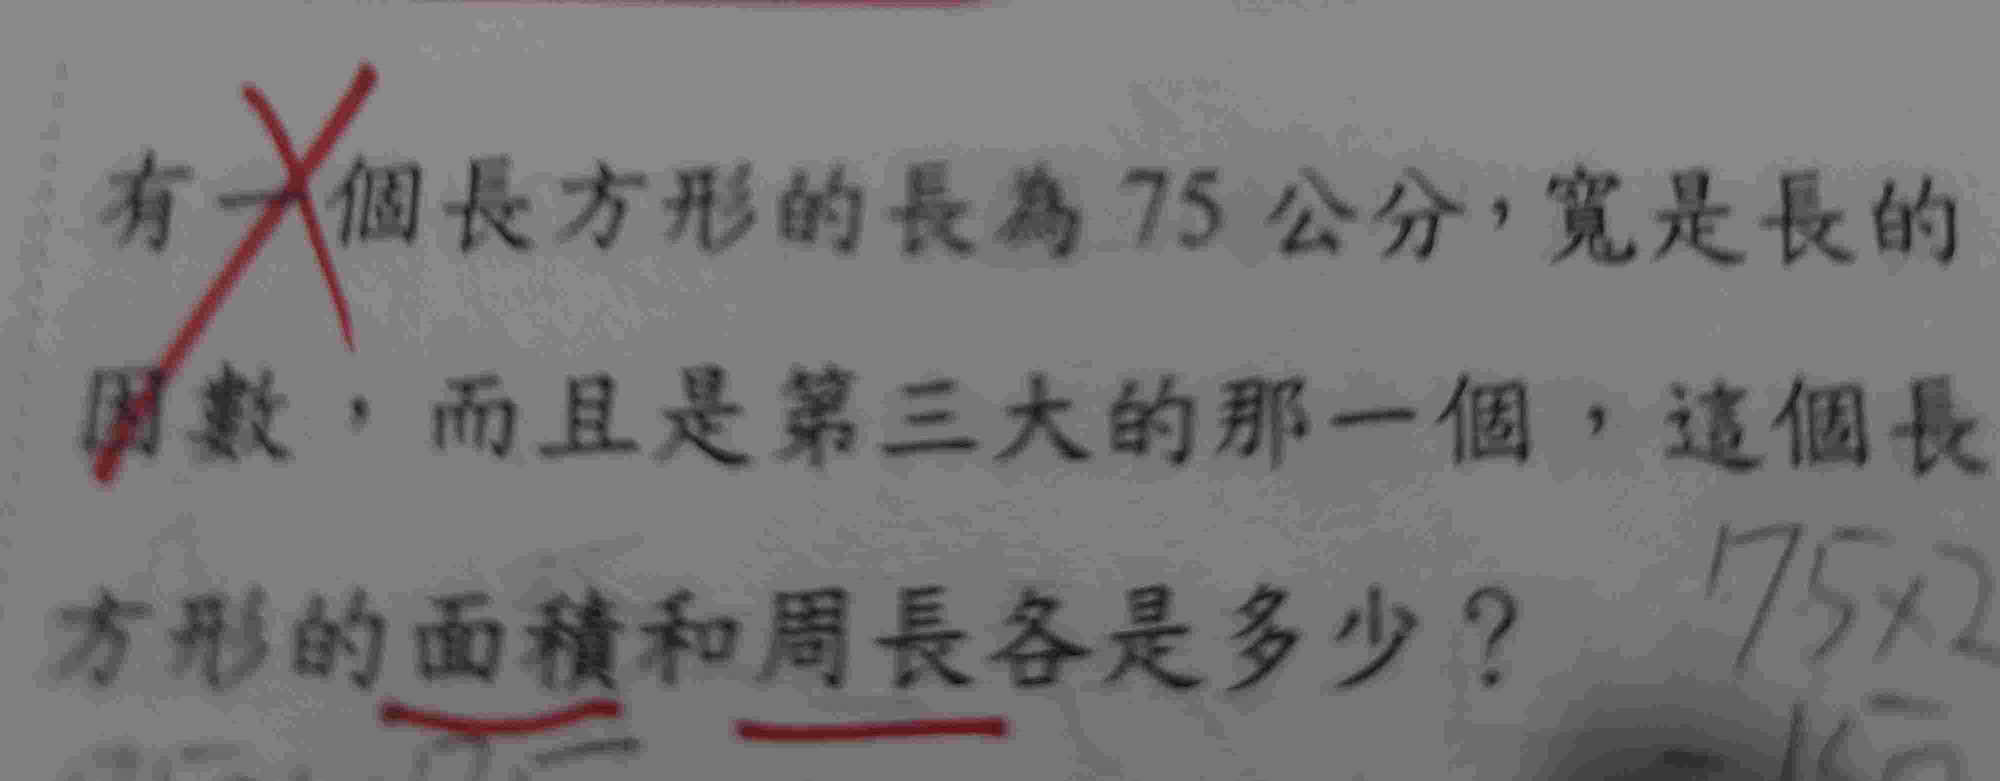 有一個長方形的長為 75 公分，寬是長的
因數，而且是第三大的那一個，這個長
方形的面積和周長各是多少？
75×2